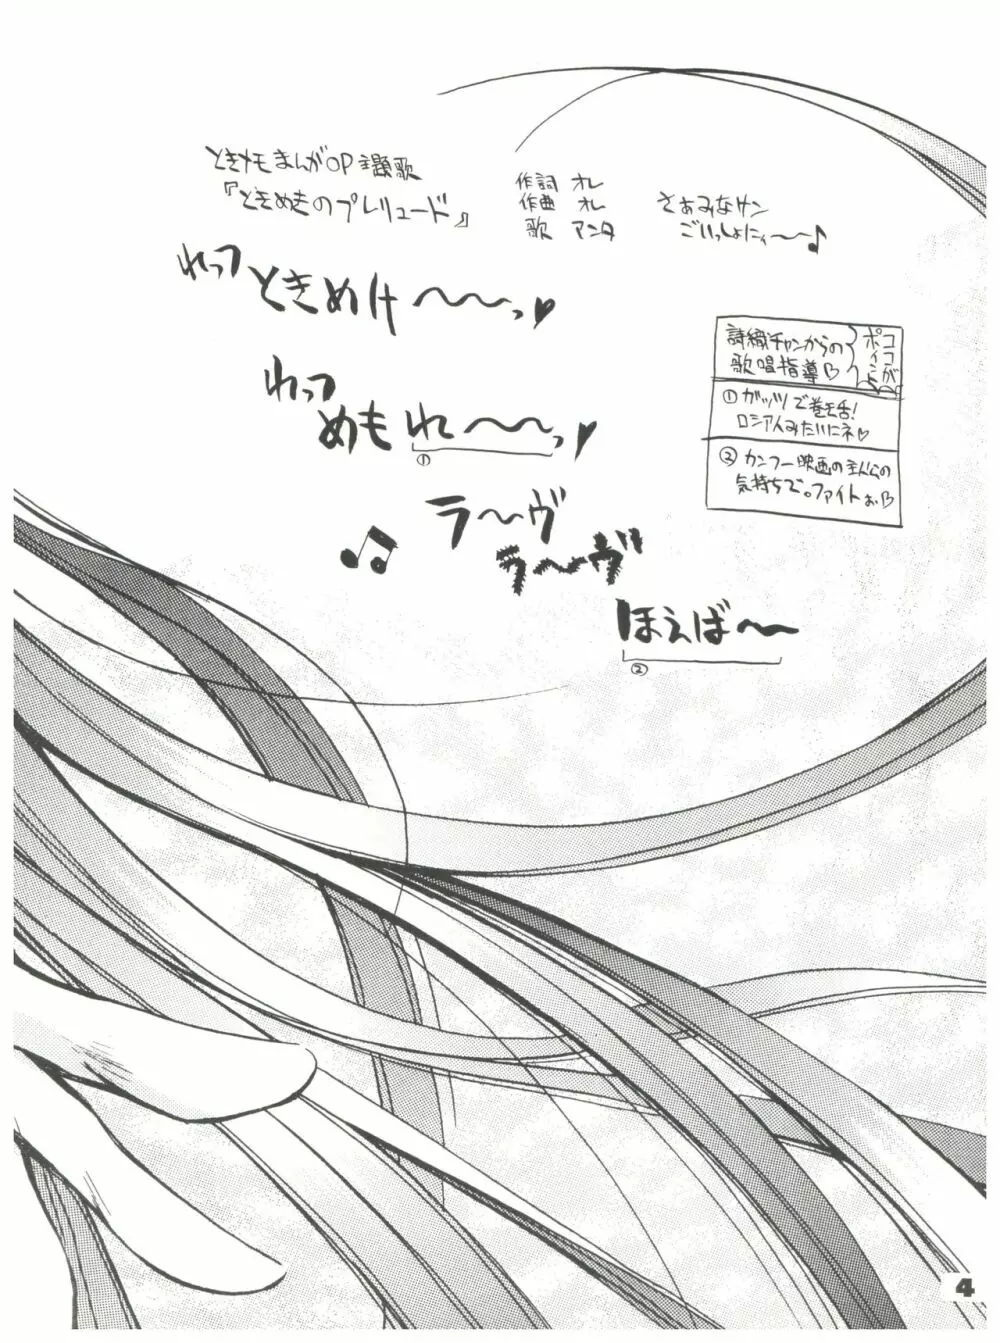 ときメモまんがOP主題歌
『ときめきのプレリュード』
作詞 オレ
作曲 オレ
歌 アンタ
さぁみなサン
ごいっしょにィ〜〜♪
れっつ
ときめけ〜〜〜っ♥
れっつ
めもれ〜〜〜っ♥
①
ラ〜〜ヴ
ラ〜〜ヴ
ほえば〜〜
②
詩織チャンからの
歌唱指導♡
ココが
ポイント
① ガッツで巻き舌!
ロシア人みたいにネ♡
② カンフー映画の主人公の
気持ちで。ファイトぉ♡
4